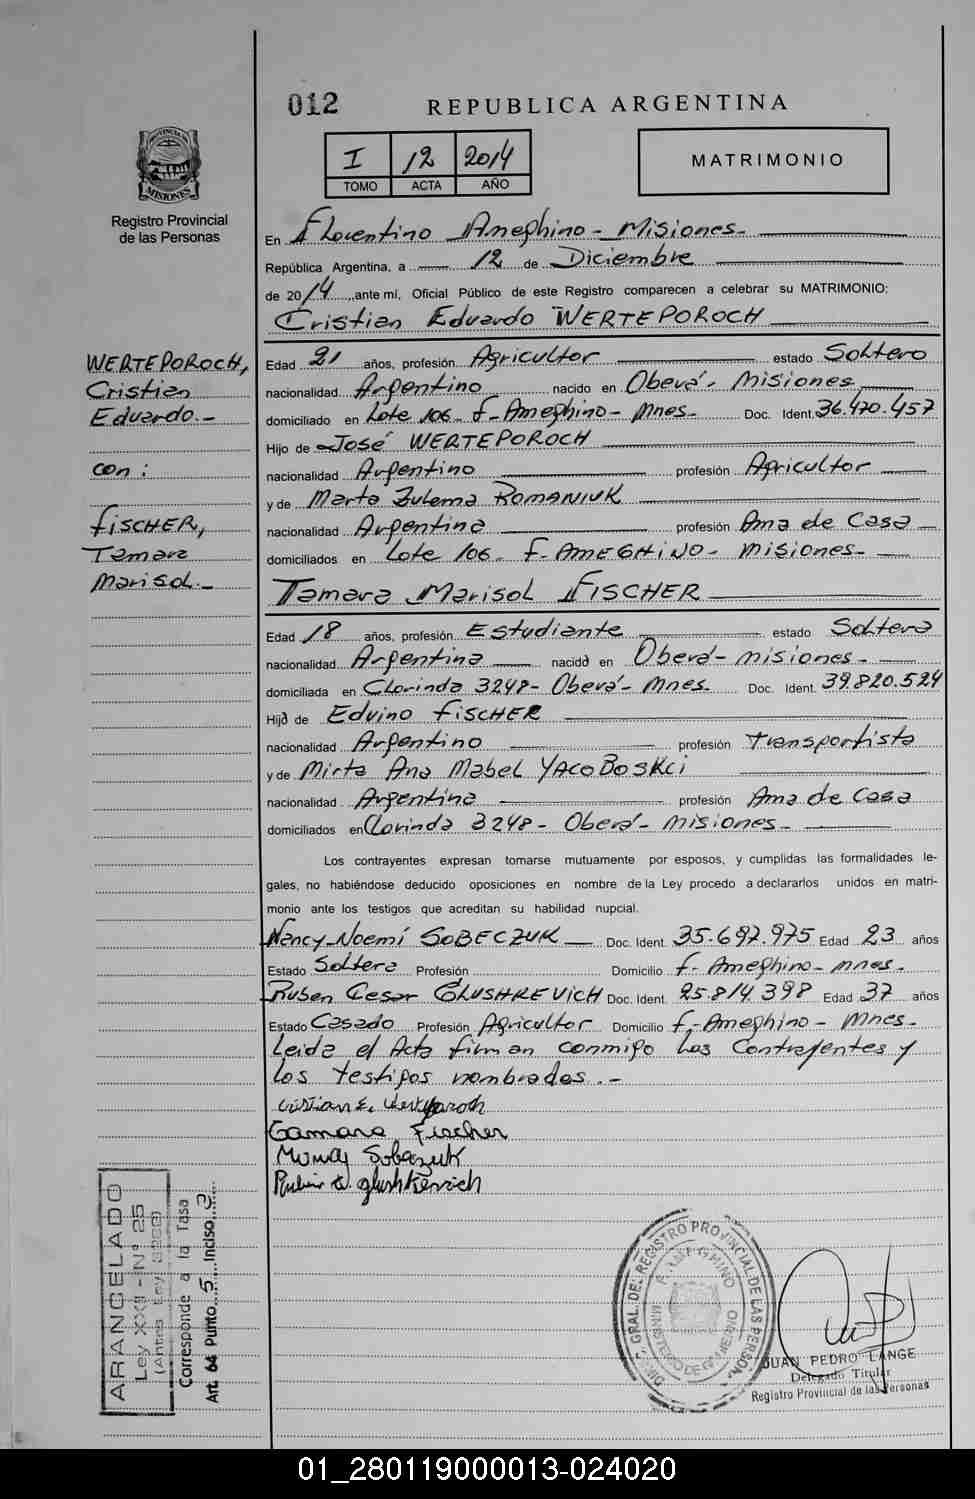 012
REPUBLICA ARGENTINA
PROVINCIA DE
MISIONES
Registro Provincial
de las Personas
I 12 2014
TOMO ACTA AÑO
MATRIMONIO
En Florentino Ameghino - Misiones -
República Argentina, a 12 de Diciembre
de 2014, ante mí, Oficial Público de este Registro comparecen a celebrar su MATRIMONIO:
Cristian Eduardo WERTEPOROCH
WERTEPOROCH,
Cristian
Eduardo.-
con:
FISCHER,
Tamara
Marisol.-
Edad 21 años, profesión Agricultor estado Soltero
nacionalidad Argentino nacido en Oberá - Misiones
domiciliado en Lote 106 - F. Ameghino - Mnes - Doc. Ident. 36.470.457
Hijo de José WERTEPOROCH
nacionalidad Argentino profesión Agricultor
y de Marta Zulema ROMANIUK
nacionalidad Argentina profesión Ama de Casa
domiciliados en Lote 106 - F. AMEGHINO - Misiones -
Tamara Marisol FISCHER
Edad 18 años, profesión Estudiante estado Soltera
nacionalidad Argentina nacida en Oberá - Misiones -
domiciliada en Clorinda 3248 - Oberá - Mnes. Doc. Ident. 39.820.524
Hija de Edvino FISCHER
nacionalidad Argentino profesión Transportista
y de Mirta Ana Mabel YACOBOSKCI
nacionalidad Argentina profesión Ama de Casa
domiciliados en Clorinda 3248 - Oberá - Misiones -
Los contrayentes expresan tomarse mutuamente por esposos, y cumplidas las formalidades le-
gales, no habiéndose deducido oposiciones en nombre de la Ley procedo a declararlos unidos en matri-
monio ante los testigos que acreditan su habilidad nupcial.
Nancy Noemí SOBECZUK Doc. Ident. 35.697.975 Edad 23 años
Estado Soltera Profesión Domicilio F. Ameghino - Mnes -
Ruben Cesar GLUSHREVICH Doc. Ident. 25.814.398 Edad 37 años
Estado Casado Profesión Agricultor Domicilio F. Ameghino - Mnes -
Leida el Acta firman conmigo los Contrayentes y
los testigos nombrados.-
Cristian E. Werteporoch
Tamara Fischer
Sobeczuk
glushkevich
ARANCELADO
Ley XXII - Nº 25
(Antes Ley 3262)
Corresponde a la Tasa
Art. 64 Punto 5 Inciso 9
GRAL. DEL REGISTRO PROVINCIAL DE LAS PERSON
F. AMEGHINO
MINISTERIO DE GOBIERNO
JUAN PEDRO LANGE
Delegado Titular
Registro Provincial de las Personas
01_280119000013-024020